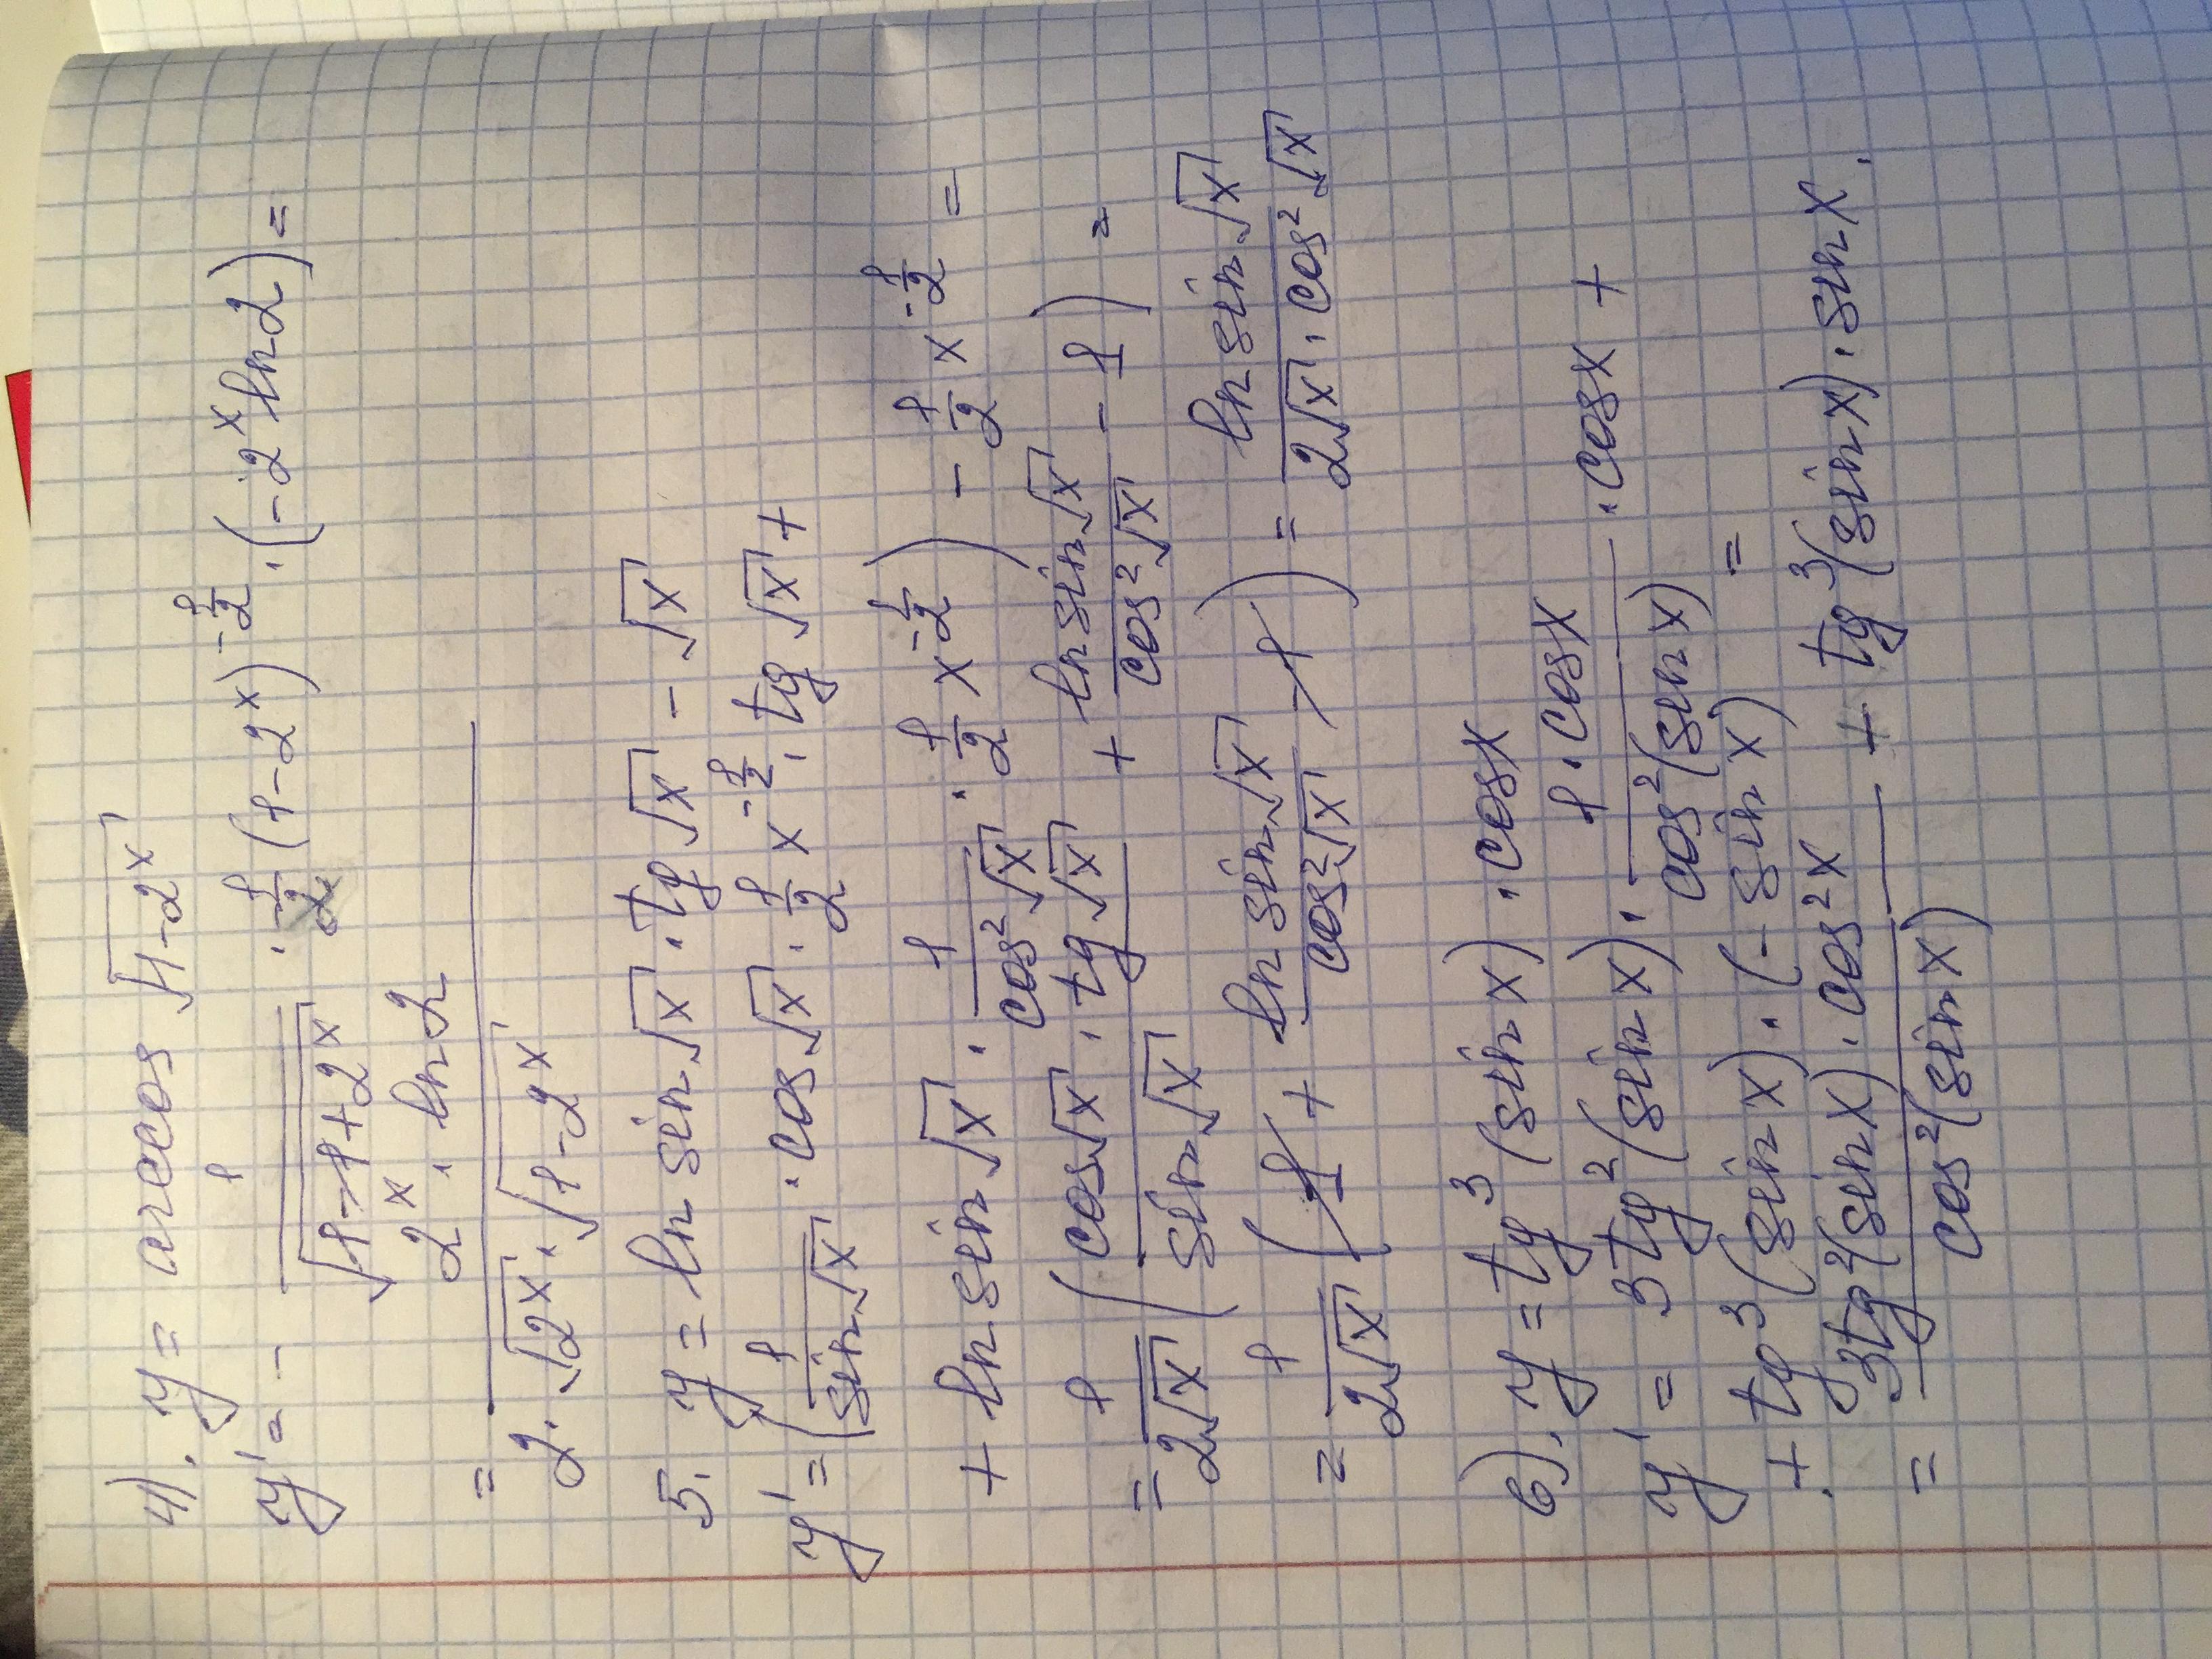 4). y = arccos √(1-2ˣ)
y' = - 1/√(1-1+2ˣ) · 1/2 (1-2ˣ)^(-1/2) · (-2ˣ ln2) =
= (2ˣ · ln 2)/(2 · √(2ˣ) · √(1-2ˣ))
5. y = ln sin √x · tg √x - √x
y' = (1/(sin √x) · cos √x · 1/2 x^(-1/2) · tg √x +
+ ln sin √x · 1/(cos² √x) · 1/2 x^(-1/2)) - 1/2 x^(-1/2) =
= 1/(2√x) ((cos √x · tg √x)/(sin √x) + (ln sin √x)/(cos² √x) - 1) =
= 1/(2√x) (1 + (ln sin √x)/(cos² √x) - 1) = (ln sin √x)/(2√x · cos² √x)
6). y = tg³(sin x) · cos x
y' = 3tg²(sin x) · (1 · cos x)/(cos²(sin x)) · cos x +
+ tg³(sin x) · (- sin x) =
= (3tg²(sin x) · cos² x)/(cos²(sin x)) + tg³(sin x) · sin x.